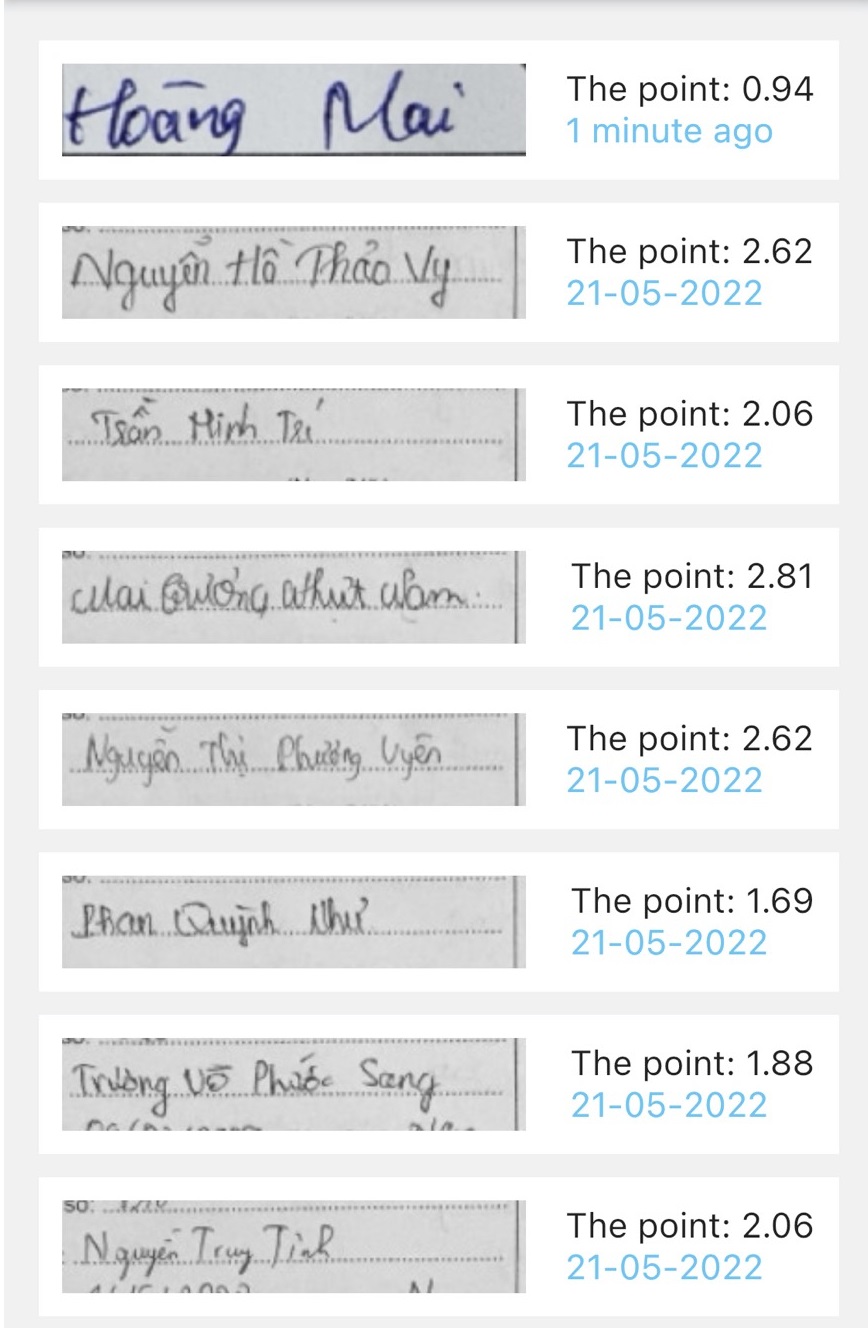 Hoàng Mai
The point: 0.94
1 minute ago
Nguyễn Hồ Thảo Vy
The point: 2.62
21-05-2022
Trần Minh Trí
The point: 2.06
21-05-2022
Mai Quương Nhựt Nam
The point: 2.81
21-05-2022
Nguyễn Thị Phương Uyên
The point: 2.62
21-05-2022
Phan Quỳnh Như
The point: 1.69
21-05-2022
Trương Võ Phước Sang
The point: 1.88
21-05-2022
số:
Nguyễn Truy Tình
The point: 2.06
21-05-2022